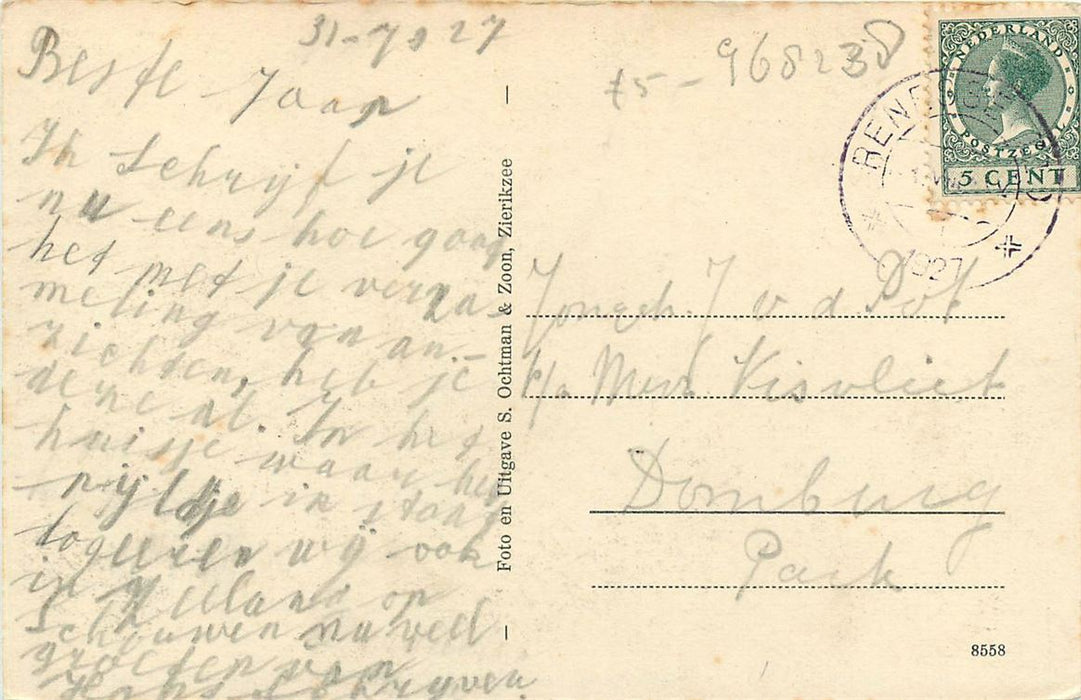 31-7-27
Beste Jaap
Ik schrijf je
nu eens hoe gaat
het met je verza-
meling van an-
zichten, heb je
deze al. In het
huisje waar het
pijltje in staat
logeeren wij ook
in Zeeland op
Schouwen nu veel
groeten van
£5-
968238
NEDERLAND
POSTZEGEL
5 CENT
RENE
1927
Jongeh. J v d Pot
p/a Mevr. Visvliet
Domburg
Park
Foto en Uitgave S. Ochtman & Zoon, Zierikzee
8558